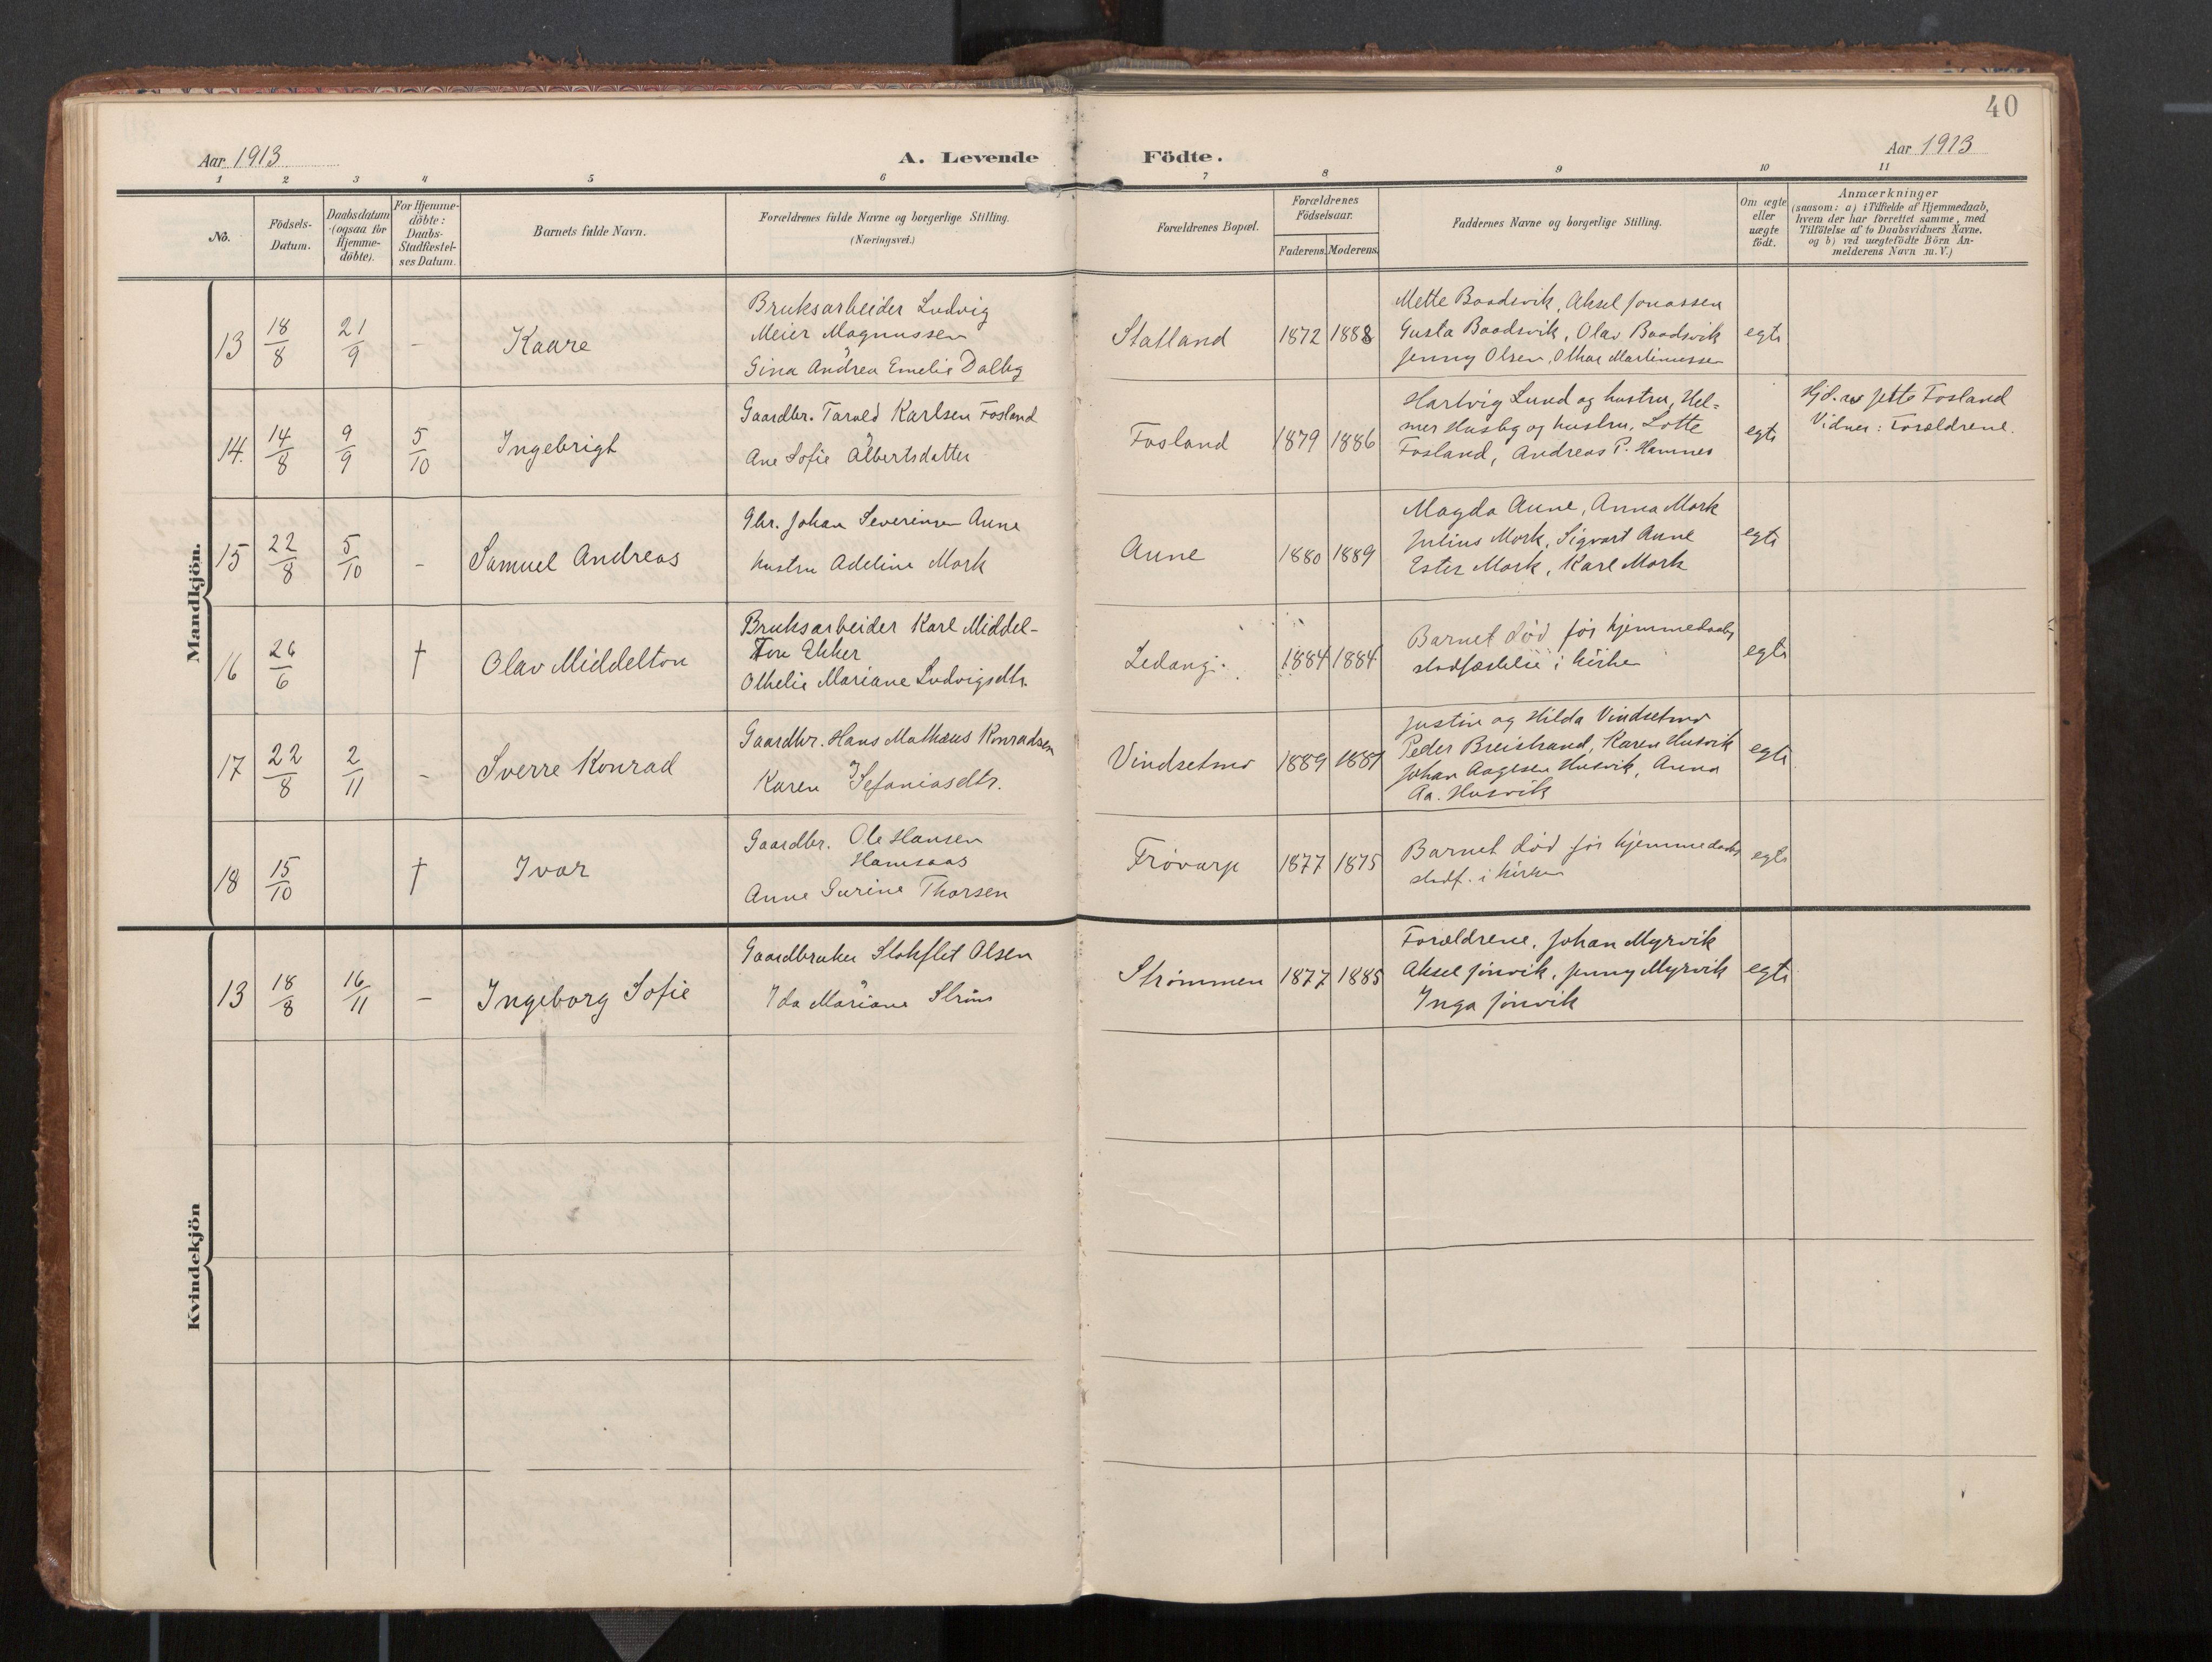 40
Aar 1913
A. Levende Födte.
Aar 1913
1 2 3 4 5 6 7 8 9 10 11
No.
Födsels-
Datum.
Daabsdatum
(ogsaa for
Hjemme-
döbte).
For Hjemme-
döbte:
Daabs-
Stadfæstel-
ses Datum.
Barnets fulde Navn.
Forældrenes fulde Navne og borgerlige Stilling.
(Næringsvei.)
Forældrenes Bopæl.
Forældrenes
Födselsaar.
Faderens. Moderens.
Faddernes Navne og borgerlige Stilling.
Om ægte
eller
uægte
födt.
Anmærkninger
(saasom: a) i Tilfælde af Hjemmedaab,
hvem der har forrettet samme, med
Tilföielse af to Daabsvidners Navne,
og b) ved uægtefödte Börn An-
melderens Navn m. V.)
Mandkjön.
13 18/8 21/9 - Kaare
Bruksarbeider Ludvig
Meier Magnussen
Gina Andrea Emelie Dalby
Statland 1872 1888
Mette Baadsvik, Aksel Jonassen
Gusta Baadsvik, Olav Baadsvik
Jenny Olsen, Othar Martinussen
egte
14. 14/8 9/9 5/10 Ingebrigt
Gaardbr. Tarald Karlsen Fosland
Ane Sofie Albertsdatter
Fosland 1879 1886
Hartvig Lund og hustru, Hel=
mer Husby og hustru, Lotte
Fosland, Andreas P. Hamnes
egte
Hjd. av Jette Fosland
Vidner: Forældrene.
15 22/8 5/10 - Samuel Andreas
Gbr. Johan Severinsen Aune
hustru Adeline Mork
Aune 1880 1889
Magda Aune, Anna Mork
Julius Mork, Sigvart Aune
Ester Mork, Karl Mork
egte
16 26/6 † Olav Middelton
Bruksarbeider Karl Middel-
ton Ekker
Othelie Mariane Ludvigsdtr.
Ledang 1884 1884
Barnet död før hjemmedaabs
stadfæstelse i kirken
egte
17 22/8 2/11 - Sverre Konrad
Gaardbr. Hans Mathæus Konradsen
Karen Sefaniasdtr.
Vindsetmo 1889 1887
Justin og Hilda Vindsetmo
Peder Breistrand, Karen Husvik
Johan Aagesen Husvik, Anna
Aa. Husvik
egte
18 15/10 † Ivar
Gaardbr. Ole Hansen
Hamsaas
Anne Gurine Thorsen
Frövarp 1877 1875
Barnet död før hjemmedaabs
stadf. i kirken
egte
Kvindekjön
13 18/8 16/11 - Ingeborg Sofie
Gaardbruker Stokflet Olsen
Ida Mariane Ströms
Strømmen 1877 1885
Forældrene, Johan Myrvik
Aksel Jönvik, Jenny Myrvik
Inga Jönvik
egte